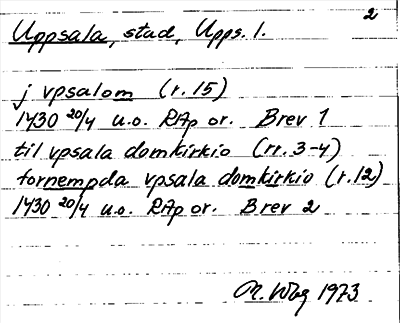 2
Uppsala, stad, Upps. l.
j vpsalom (r. 15)
1430 20/4 u.o. RAp or. Brev 1
til vpsala domkirkio (rr. 3-4)
fornempda vpsala domkirkio (r. 12)
1430 20/4 u.o. RAp or. Brev 2
1973